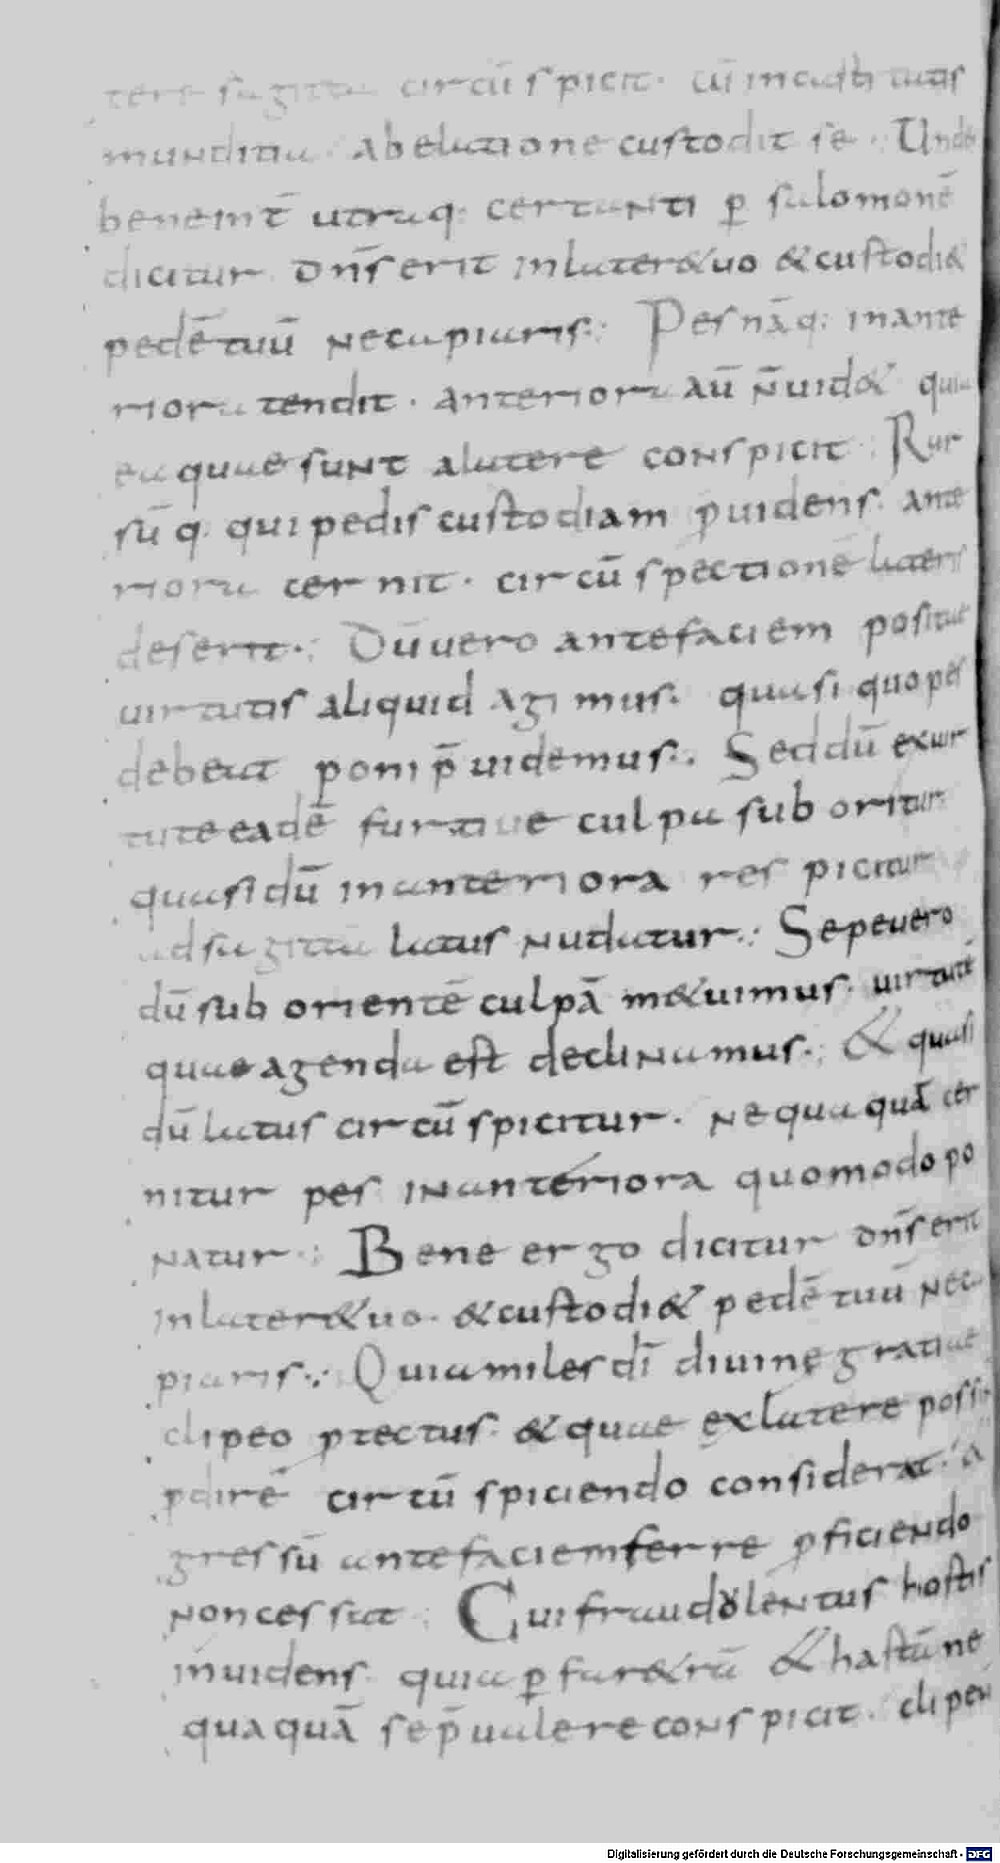 tere sagitta circū spicit. cū incauti tutis
munditia. abelatione custodit se. Unde
bene int̄ utraq: certanti ꝑ salomonē
dicitur. dn̄s erit inlater&uo &custodi&
pedē tuū necapiaris:. Pes nāq: inante
riora tendit. anteriora aū n̄ uid& quia
ea quae sunt alatere conspicit:. Rur
sū q. qui pedis custodiam ꝓuidens. ante
riora cer nit. circū spectionē lateris
deserit.: Dū uero antefaciem positae
uirtutis aliquid agimus. quasi quo pes
debeat poni p̄uidemus:. Sed dū exuir
tute eadē furtiue culpa sub oritur
quasi dū inanteriora res picitur
ad sagittā latus nudatur.: Sepe uero
dū sub orientē culpā m&uimus. uirtutē
quae agenda est declinamus.: & quasi
dū latus circū spicitur. nequaquā cer
nitur pes inanteriora quomodo po
natur.: Bene ergo dicitur dn̄s erit
inlater&uo. &custodi& pedē tuū neca
piaris:. Quia miles dī diuinę gratiae
clipeo ꝓtectus. &quae exlatere possit
pdirē circū spiciendo considerat. &
gressū antefaciem ferre ꝓficiendo
non cessat: Cui fraudolentus hostis
inuidens. quia ꝑ fur&rū & hastā ne
quaquā se p̄ualere conspicit. clipeū